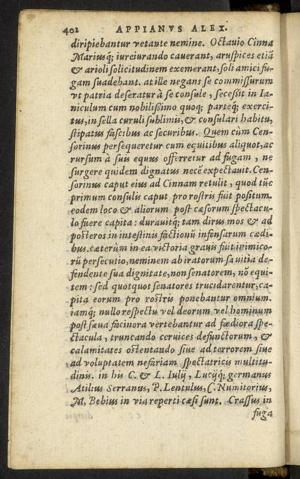 402 APPIANVS ALEX.
diripiebantur vetante nemine. Octauio Cinna
Mariusq; iureiurando cauerant, aruspices etiã
& arioli solicitudinem exemerant, soli amici fu-
gam suadebant. at ille negans se commissurum
vt patria deseratur à se consule, secessit in Ia-
niculum cum nobilissimo quoq; partéq; exerci-
tus, in sella curuli sublimis, & consulari habitu,
stipatus fascibus ac securibus. Quem cùm Cen-
sorinus persequeretur cum equitibus aliquot, ac
rursum à suis equus offerretur ad fugam, ne
surgere quidem dignatus necē expectauit. Cen-
sorinus caput eius ad Cinnam retulit, quod tūc
primum consulis caput pro rostris fuit positum.
eodem loco & aliorum post cæsorum spectacu-
lo fuere capita: durauitq; tam dirus mos & ad
posteros in intestinis factionū infensarum cædi-
bus. cæterùm in ea victoria grauis fuit inimico-
rū persecutio, neminem ab iratorum sæuitia de-
fendente sua dignitate, non senatorem, nõ equi-
tem: sed quotquot senatores trucidarentur, ca-
pita eorum pro rostris ponebantur omnium.
iamq; nullo respectu vel deorum vel hominum
post sæua facinora vertebantur ad fœdiora spe-
ctacula, truncando ceruices defunctorum, &
calamitates ostentando siue ad terrorem siue
ad voluptatem nefariam spectatricis multitu-
dinis. in his C. & L. Iulij, Lucijq; germanus
Atilius Serranus, P. Lentulus, C. Numitorius,
M. Bebius in via reperti cæsi sunt. Crassus in
fuga